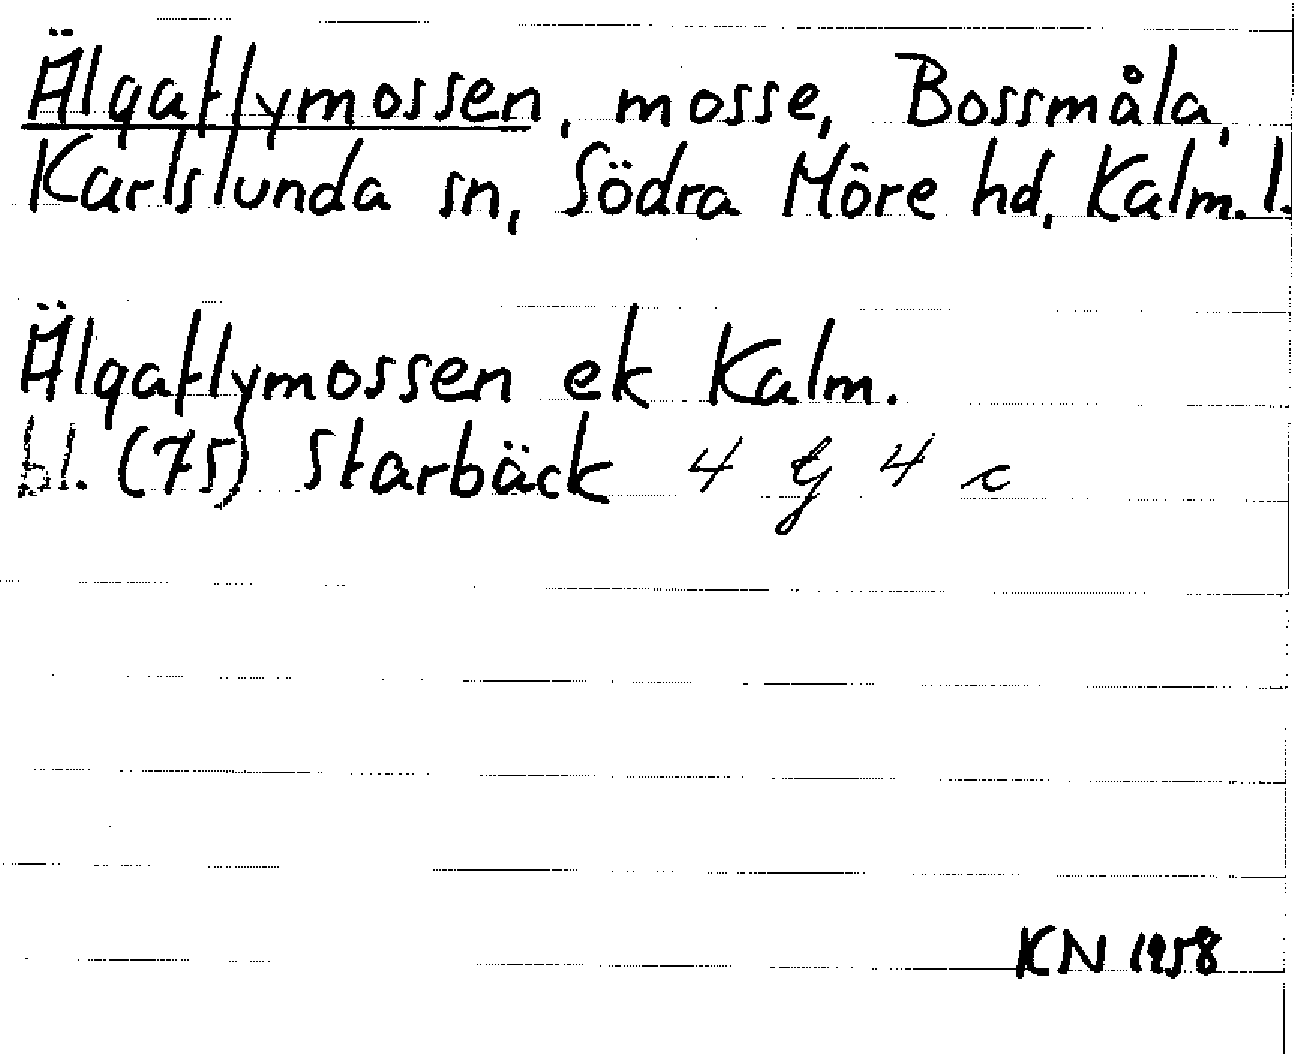 Älgaflymossen, mosse, Bossmåla,
Karlslunda sn, Södra Möre hd, Kalm. l.
Älgaflymossen ek Kalm.
bl. (75) Starbäck 4 G 4 c
KN 1958